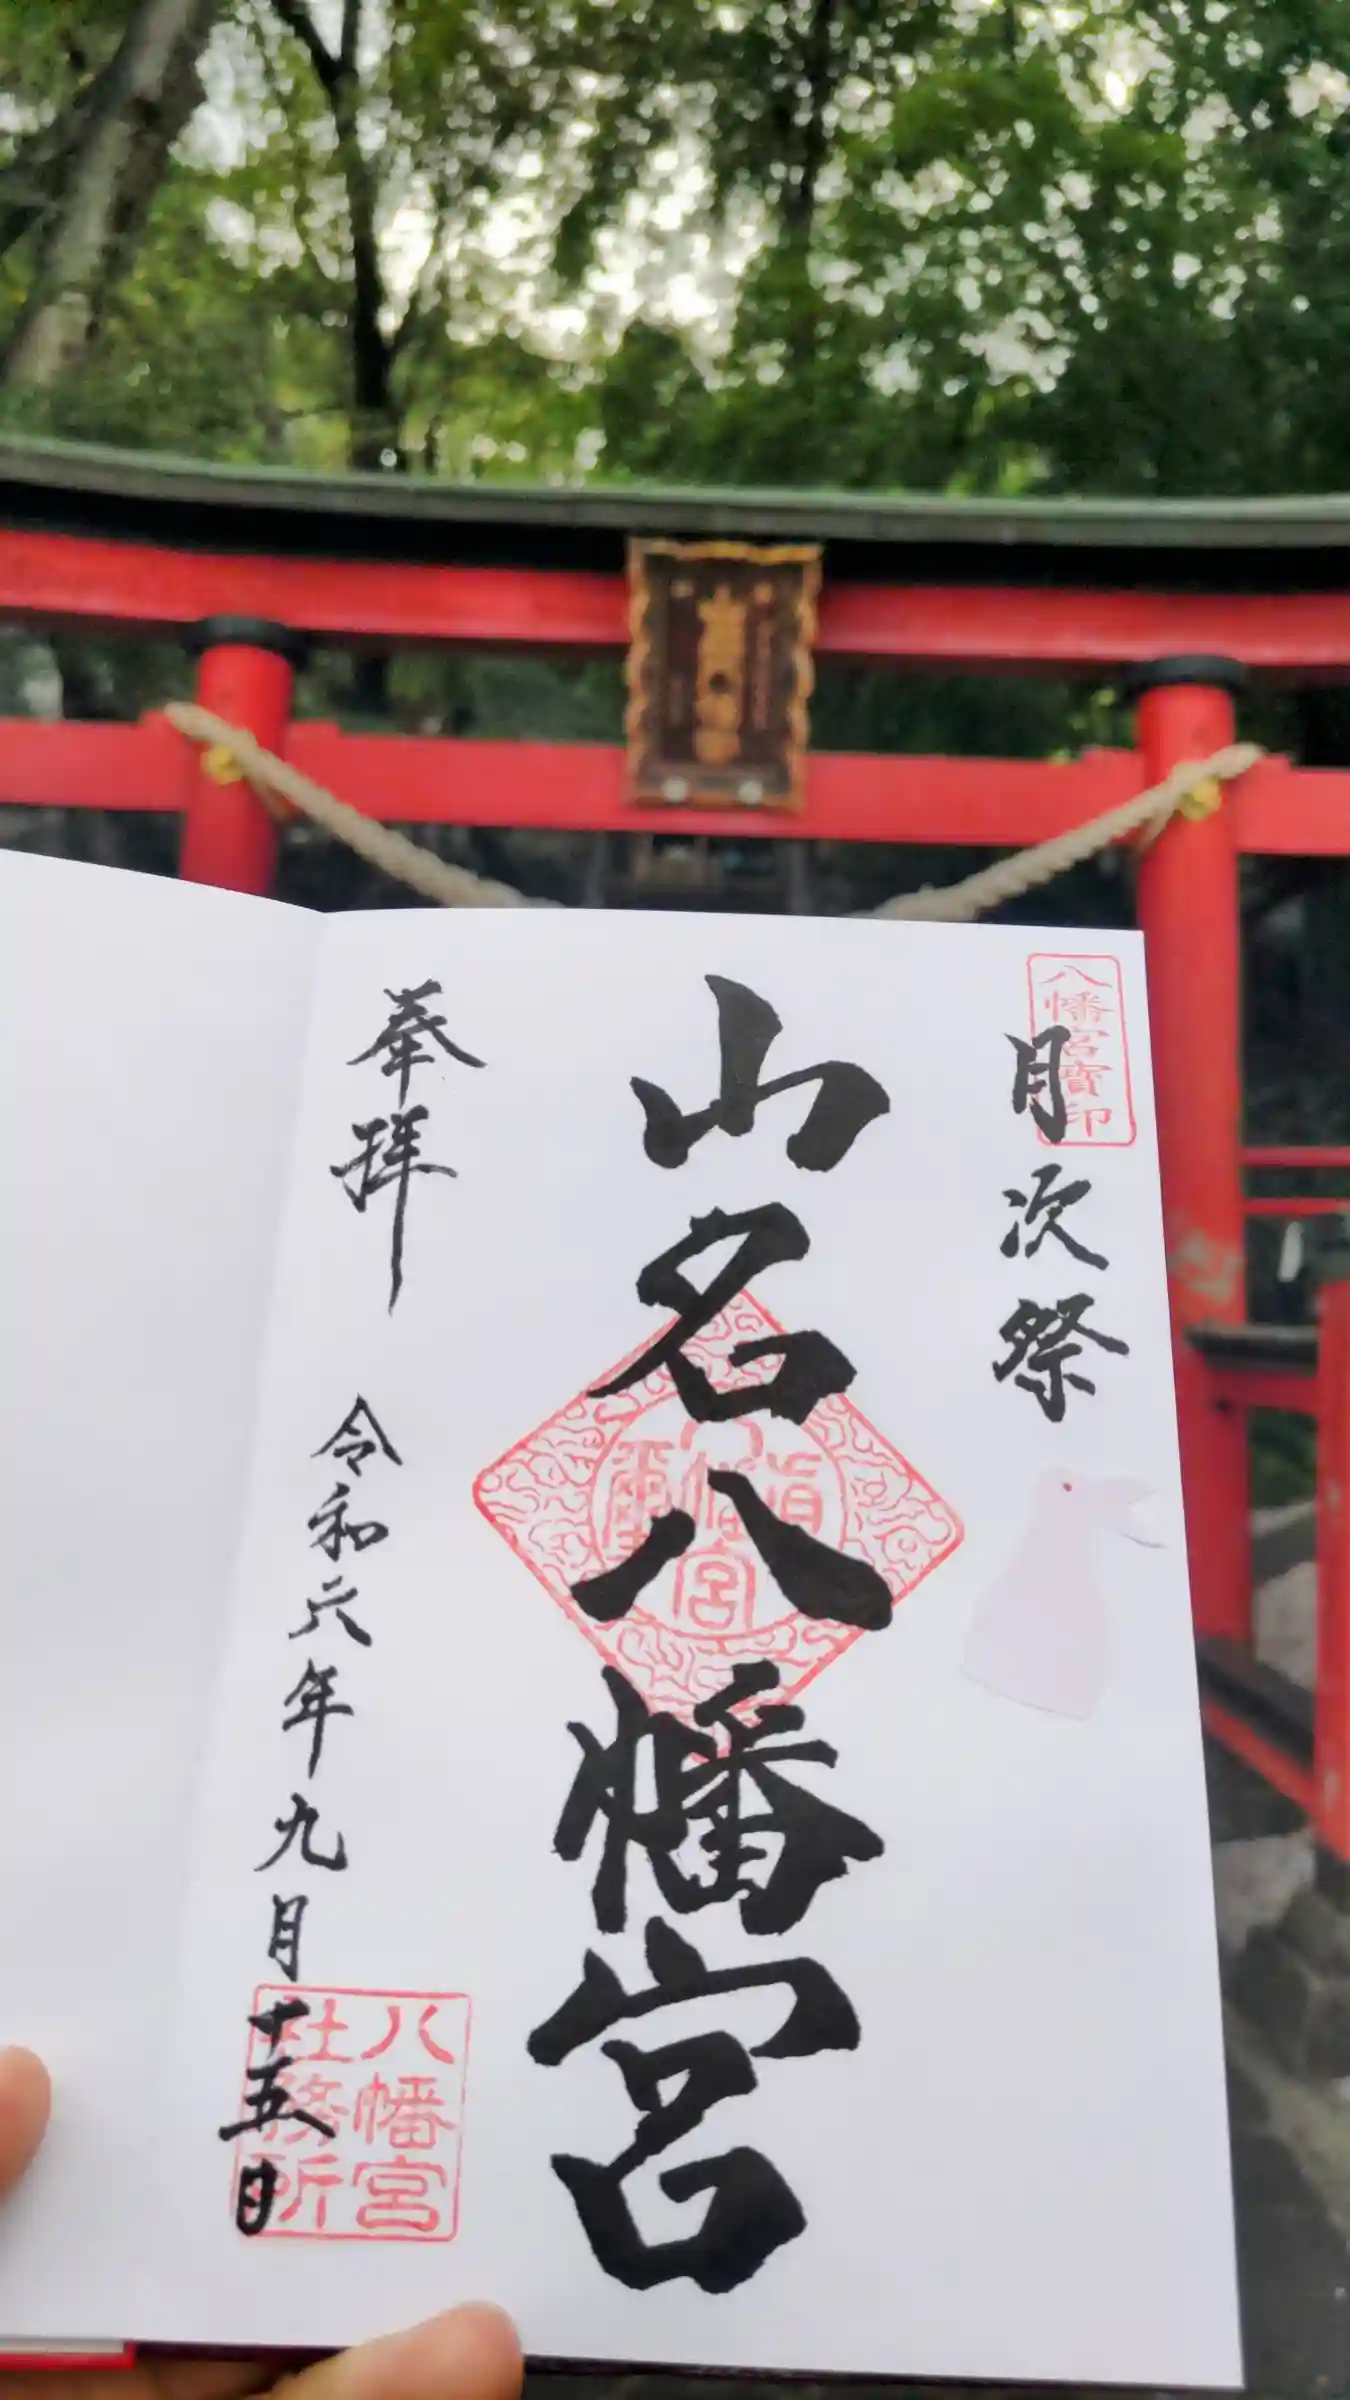 八幡宮寳印
月次祭
山名八幡宮
奉拝
令和六年九月十五日
八幡宮
社務所